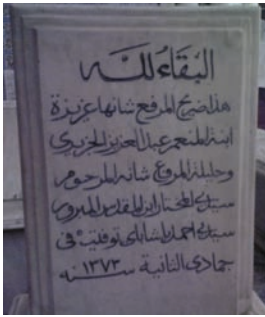 البقاء لله
هذا ضريح المرفع شانها عزيزة
ابنة المنعم عبد العزيز الجزيري
وحليلة المرفع شانه المرحوم
سيدي المختار ابن المقدس المبرور
سيدي احمد باشا باي توفيت في
جمادى الثانية سنة ١٣٧٣